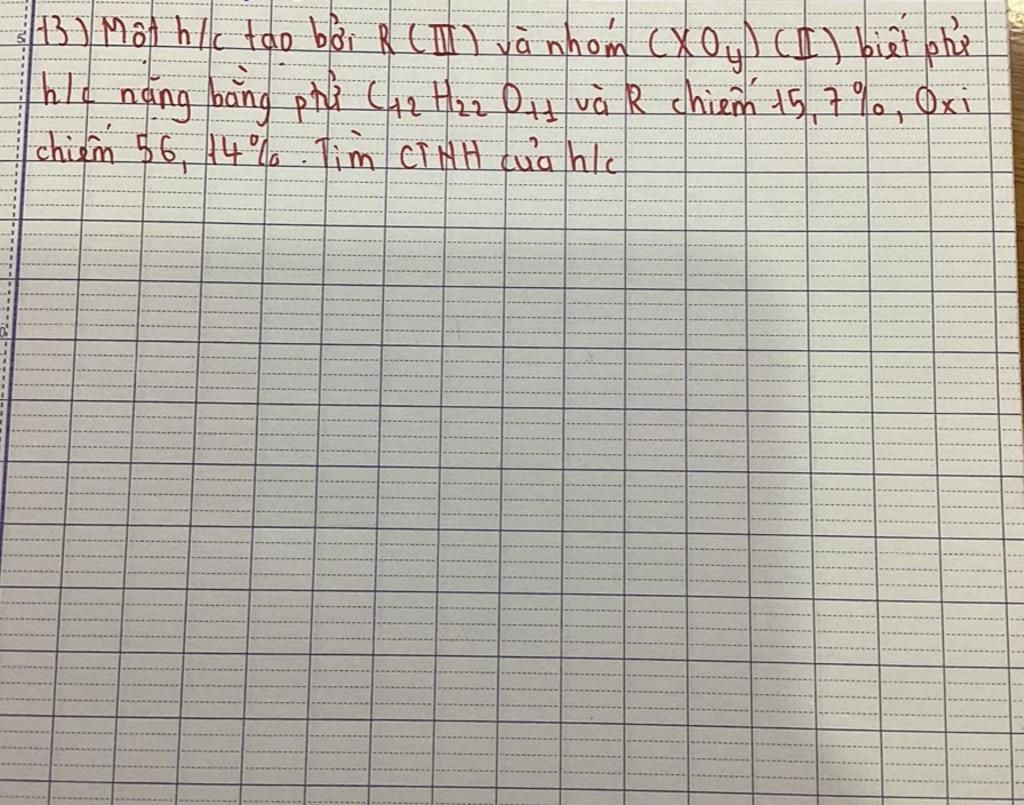 13) Một h/c tạo bởi R (III) và nhóm (XOy) (II) biết phtử
h/c nặng bằng phtử C12 H22 O11 và R chiếm 15,7%, Oxi
chiếm 56,14%. Tìm CTHH của h/c